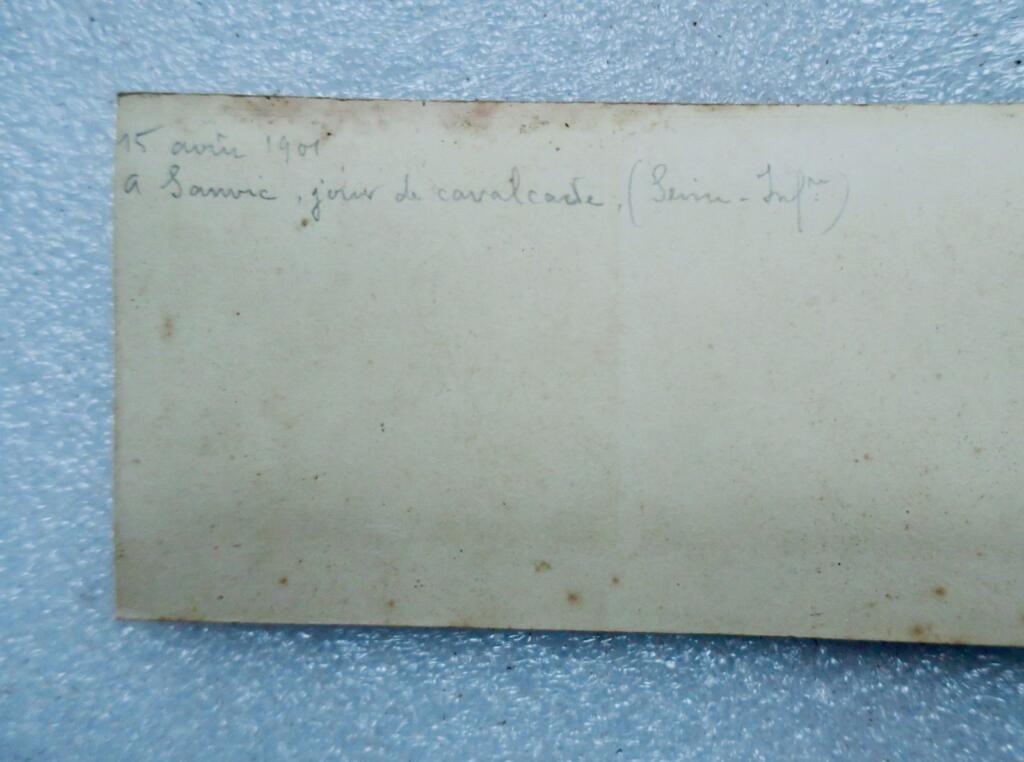 15 avril 1901
A Sanvic, jour de cavalcade, (Seine-Infre)